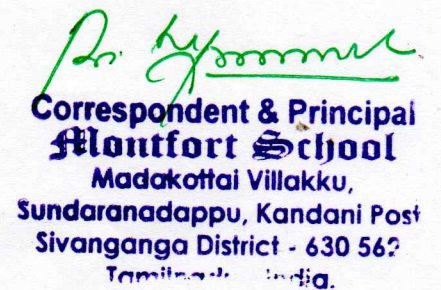 Correspondent & Principal
Montfort School
Madakottai Villakku,
Sundaranadappu, Kandani Post
Sivanganga District - 630 562
Tamilnadu India.